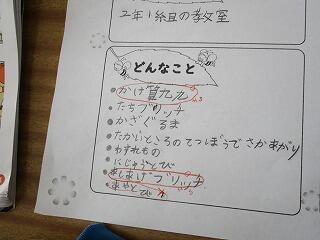 2年1組の教室
どんなこと
かけ算九九
たちブリッヂ
かざぐるま
たかいところのてつぼうでさかあがり
わすれもの
にじゅうとび
あしあげブリッヂ
あやとび